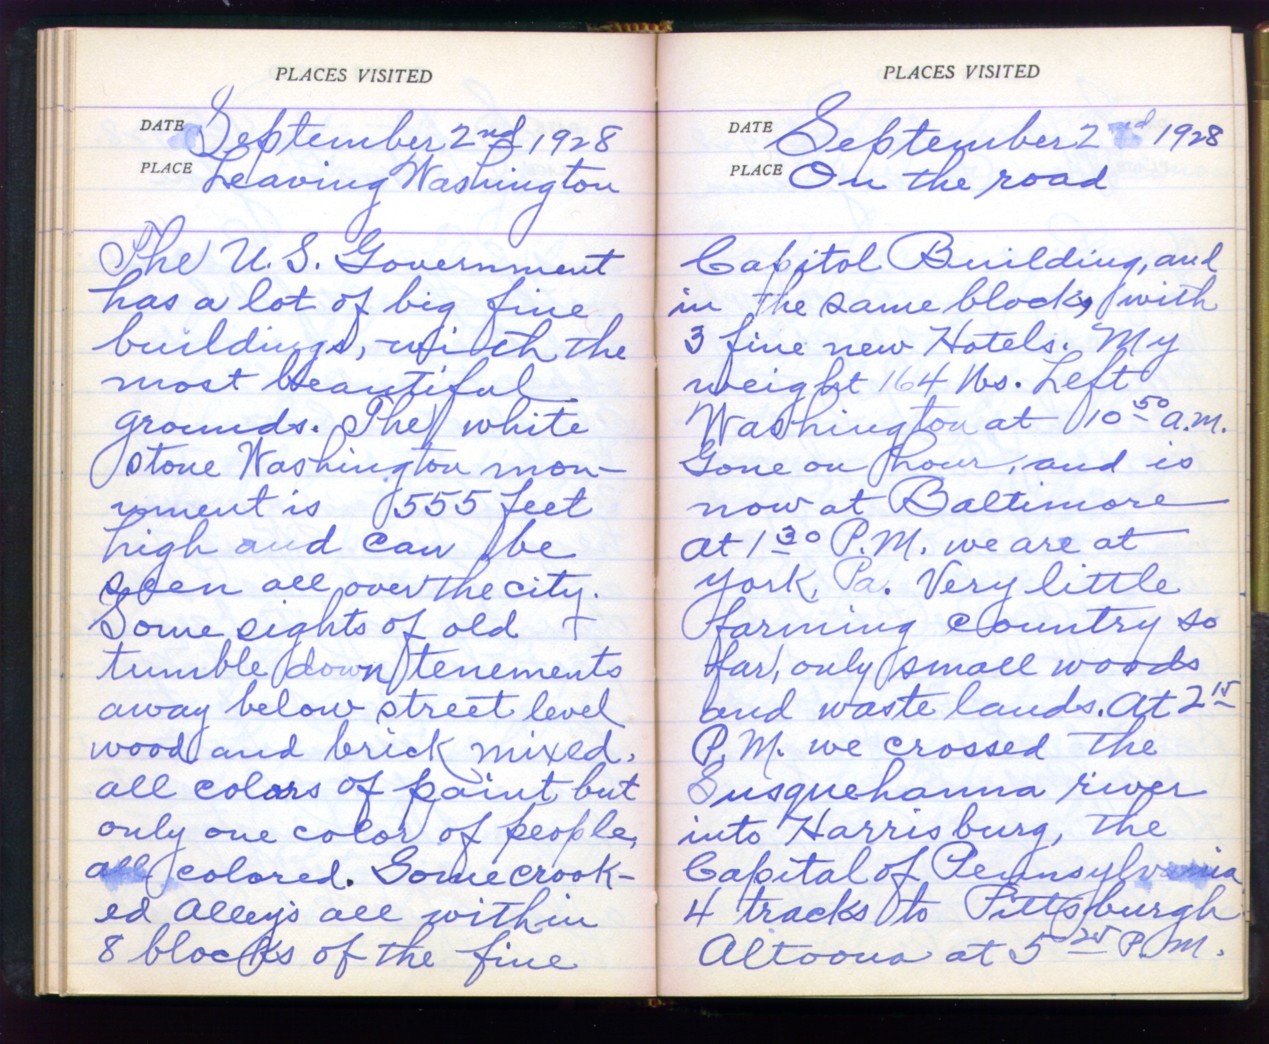 PLACES VISITED
DATE September 2nd 1928
PLACE Leaving Washington
The U.S. Government
has a lot of big fine
buildings, with the
most beautiful
grounds. The white
stone Washington mon-
ument is 555 feet
high and can be
seen all over the city.
Some sights of old +
tumble down tenements
away below street level
wood and brick mixed,
all colors of paint but
only one color of people,
all colored. Some crook-
ed Alleys all within
8 blocks of the fine
PLACES VISITED
DATE September 2nd 1928
PLACE On the road
Capitol Building, and
in the same block, with
3 fine new Hotels. My
weight 164 lbs. Left
Washington at 10 50 a.m.
Gone on hour, and is
now at Baltimore
at 1 30 P.M. we are at
York, Pa. Very little
farming country so
far, only small woods
and waste lands. At 2 15
P.M. we crossed the
Susquehanna river
into Harrisburg, the
Capital of Pennsylvania
4 tracks to Pittsburgh
Altoona at 5 25 P.M.